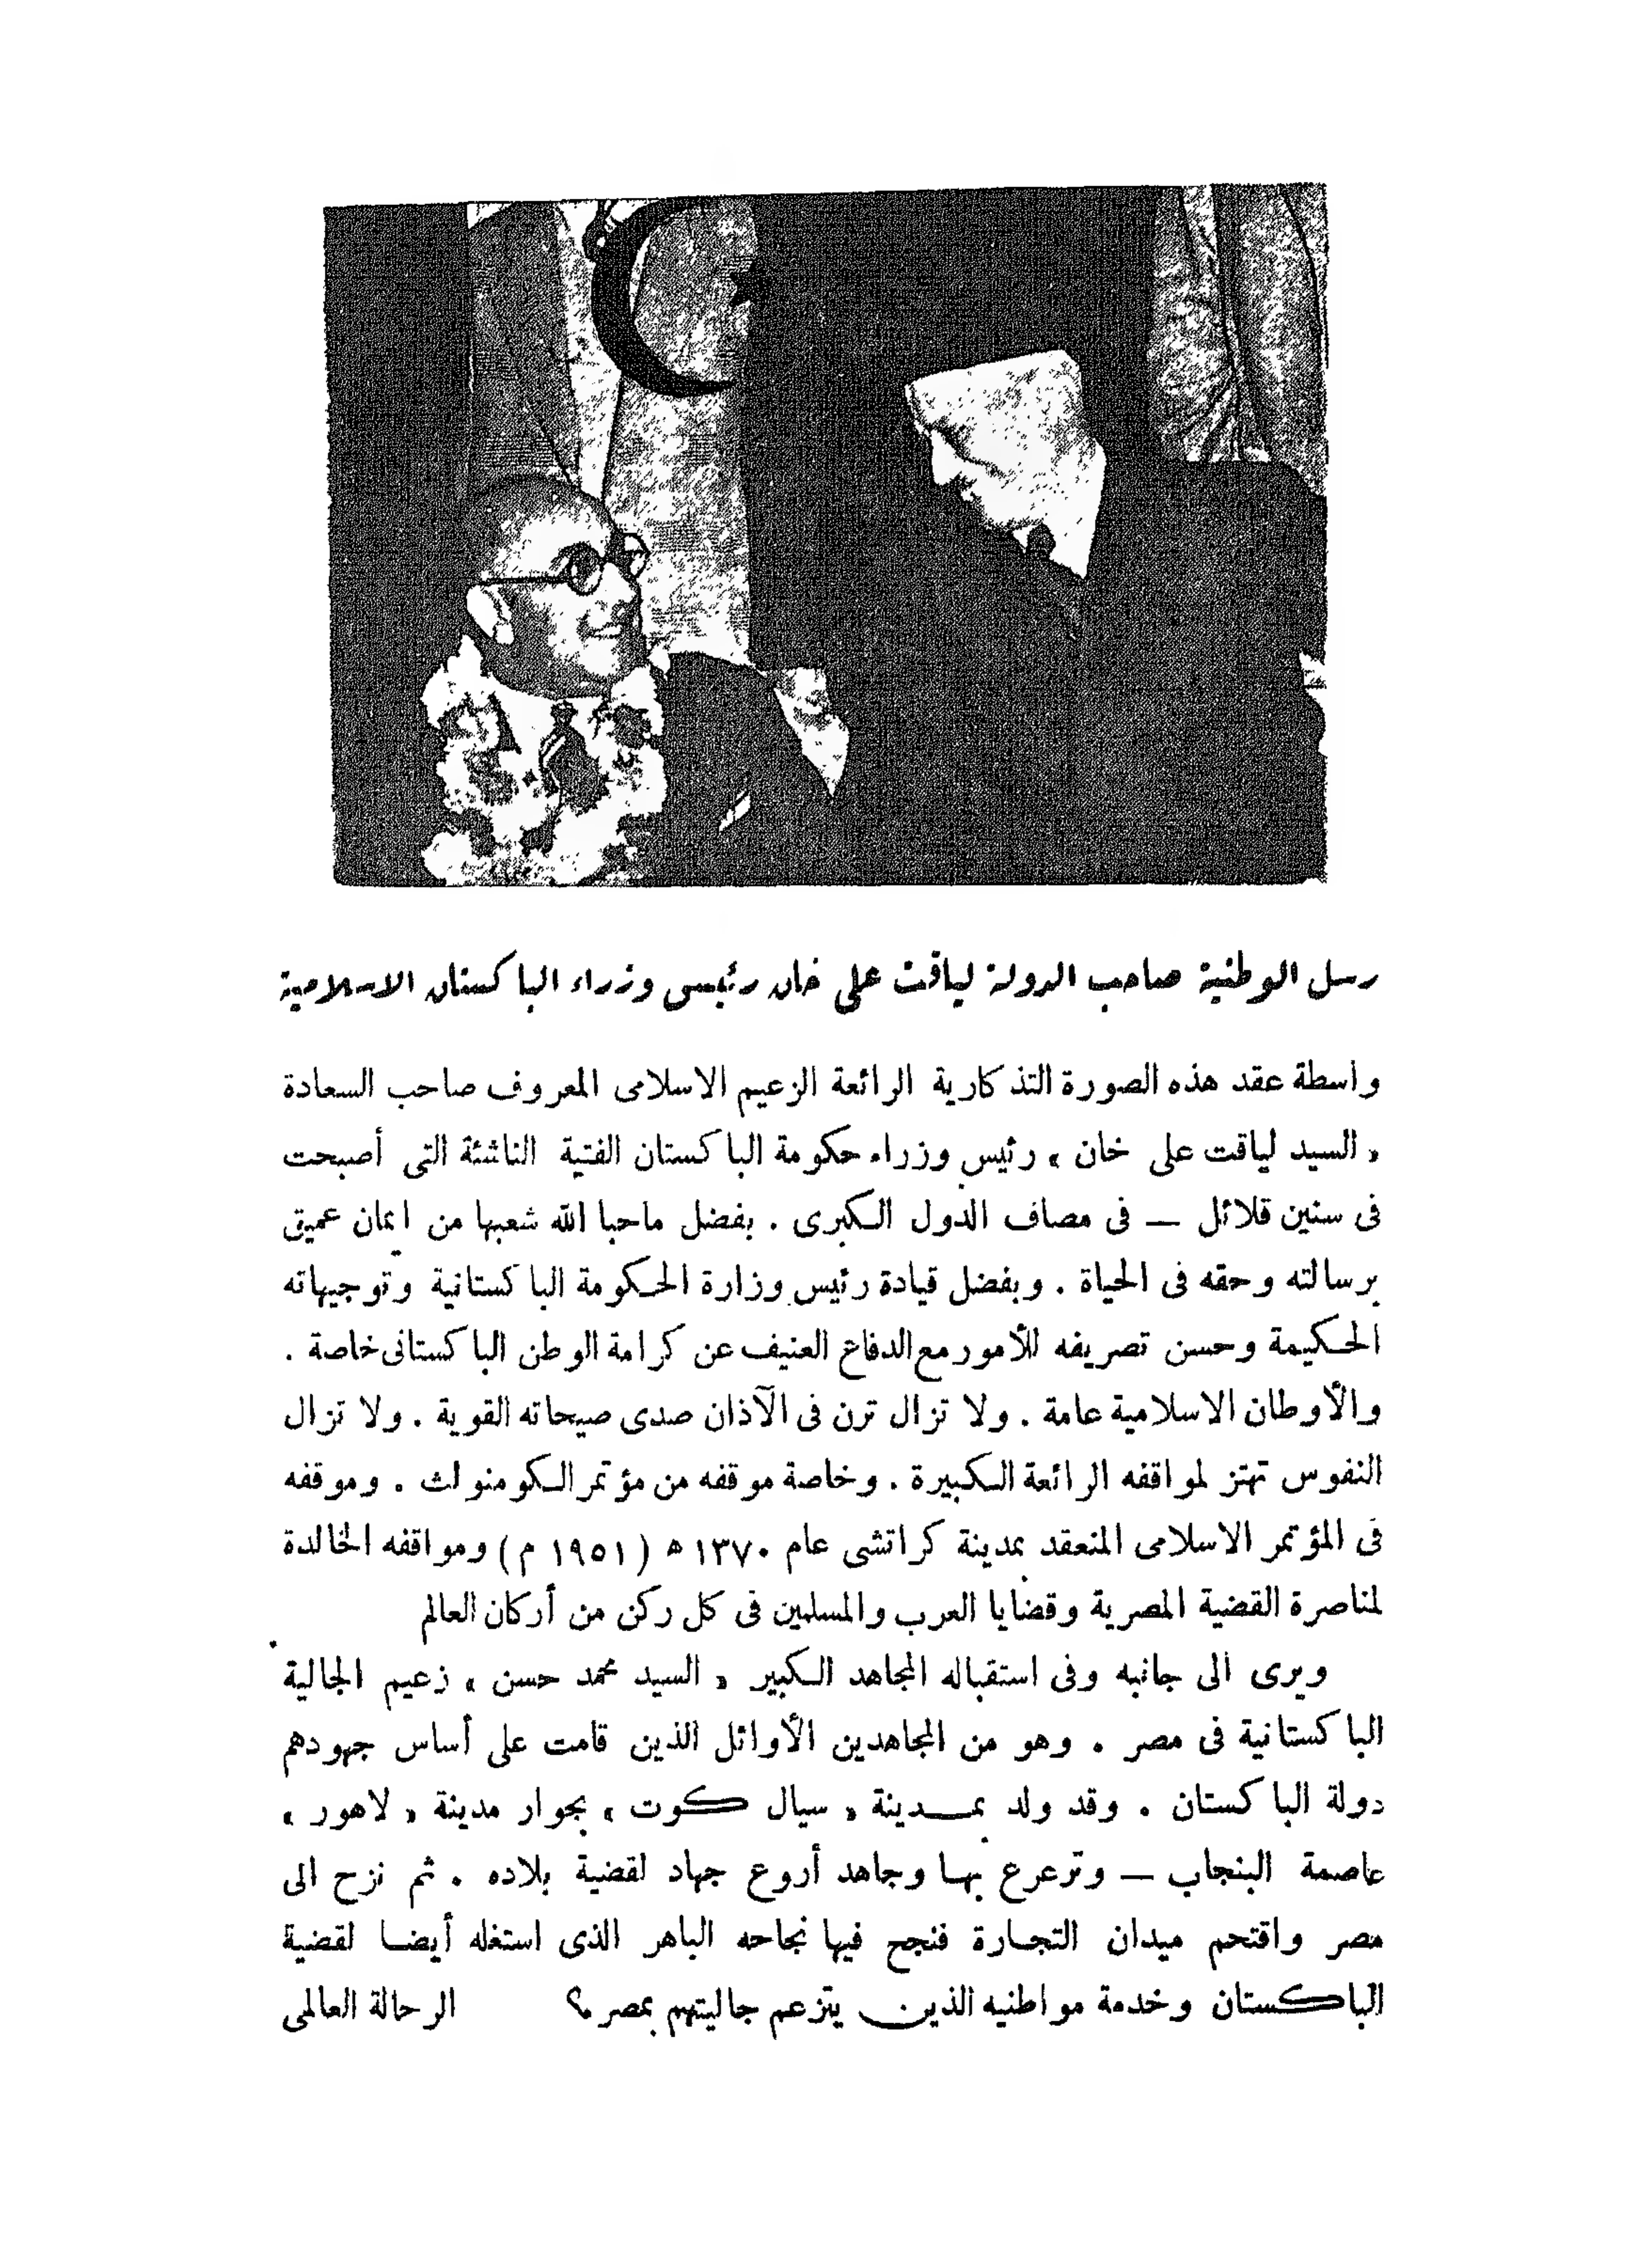 رسل الوطنية صاحب الدولة لياقت على خان رئيس وزراء الباكستان الاسلامية
واسطة عقد هذه الصورة التذكارية الرائعة الزعيم الاسلامى المعروف صاحب السعادة
« السيد لياقت على خان » رئيس وزراء حكومة الباكستان الفتية الناشئة التى أصبحت
فى سنين قلائل — فى مصاف الدول الكبرى . بفضل ماحبا الله شعبها من ايمان عميق
برسالته وحقه فى الحياة . وبفضل قيادة رئيس وزارة الحكومة الباكستانية وتوجيهاته
الحكيمة وحسن تصريفه للأمور مع الدفاع العنيف عن كرامة الوطن الباكستانى خاصة .
والأوطان الاسلامية عامة . ولا تزال ترن فى الآذان صدى صيحاته القوية . ولا تزال
النفوس تهتز لمواقفه الرائعة الكبيرة . وخاصة موقفه من مؤتمر الكومنولث . وموقفه
فى المؤتمر الاسلامى المنعقد بمدينة كراتشى عام ١٣٧٠ ه ( ١٩٥١ م ) ومواقفه الخالدة
لمناصرة القضية المصرية وقضايا العرب والمسلمين فى كل ركن من أركان العالم
ويرى الى جانبه وفى استقباله المجاهد الكبير « السيد محمد حسن » زعيم الجالية
الباكستانية فى مصر . وهو من المجاهدين الأوائل الذين قامت على أساس جهودهم
دولة الباكستان . وقد ولد بمدينة « سيال كوت » بجوار مدينة « لاهور »
عاصمة البنجاب — وترعرع بها وجاهد أروع جهاد لقضية بلاده . ثم نزح الى
مصر واقتحم ميدان التجارة فنجح فيها نجاحه الباهر الذى استغله أيضا لقضية
الباكستان وخدمة مواطنيه الذين يتزعم جاليتهم بمصر ؟ الرحالة العالمى